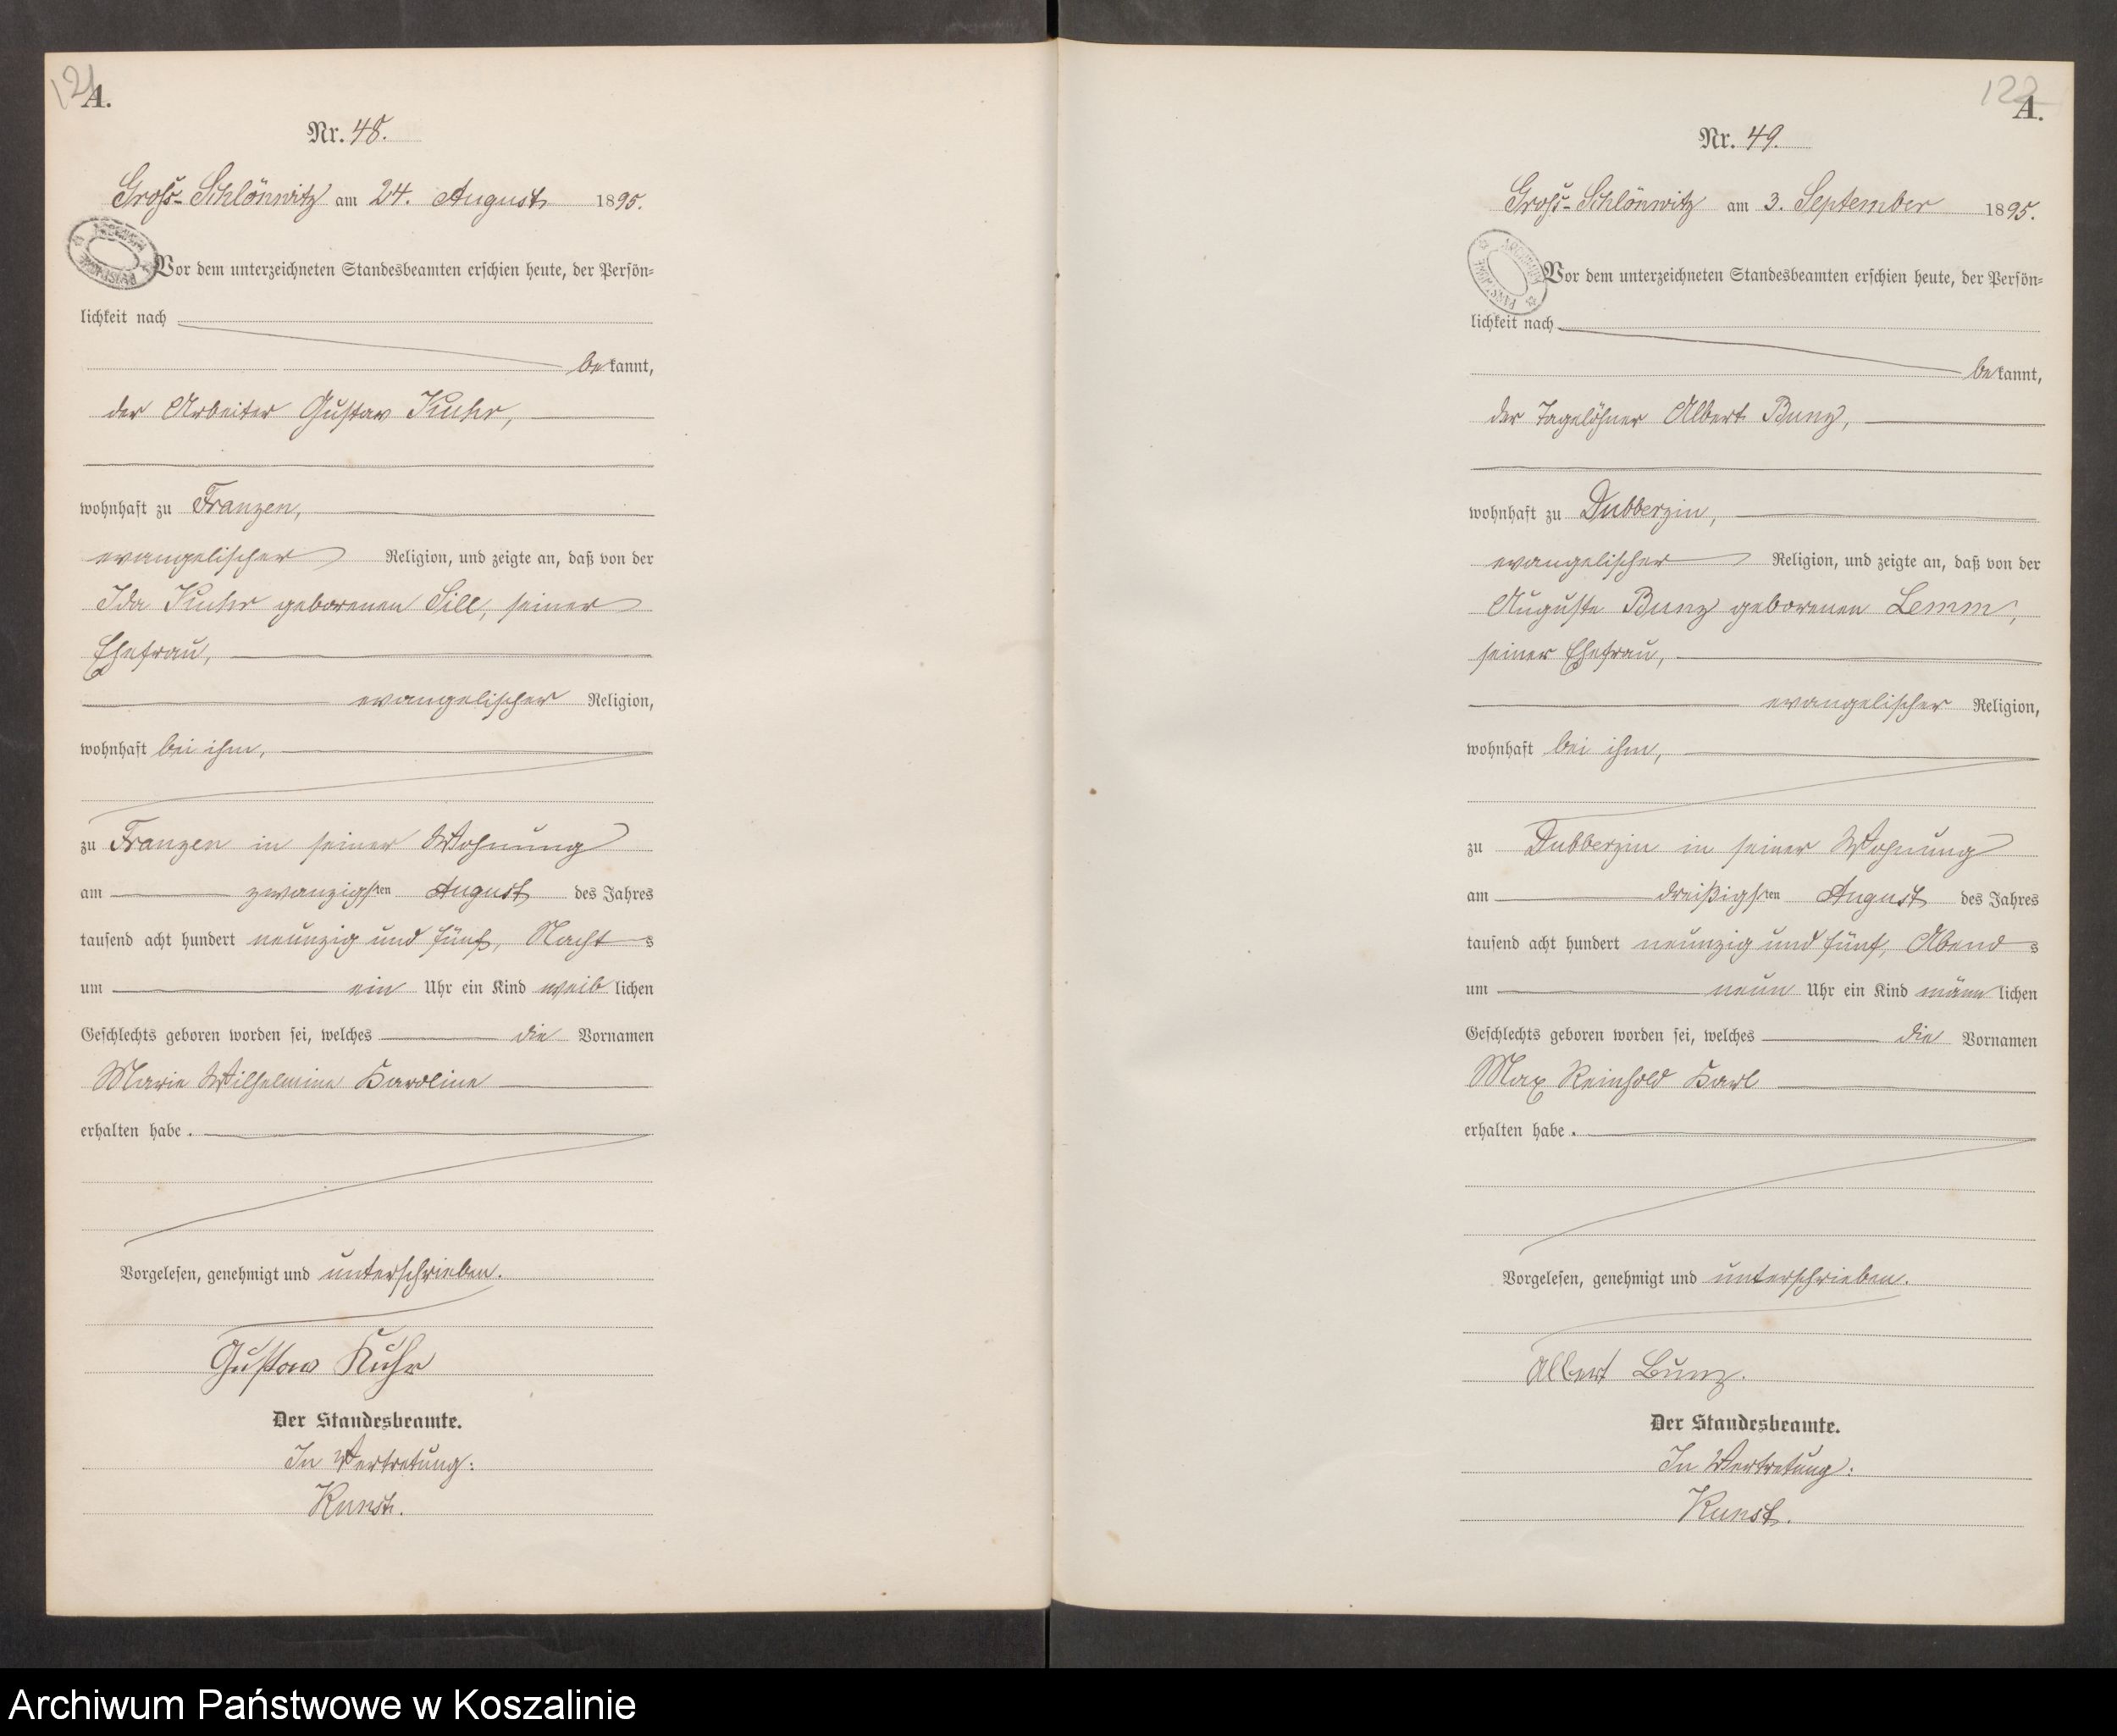 121
A.
Nr. 48.
Groß-Schlönwitz am 24. August 1895.
Vor dem unterzeichneten Standesbeamten erschien heute, der Persön-
lichkeit nach
bekannt,
der Arbeiter Gustav Kuhr,
wohnhaft zu Franzen,
evangelischer Religion, und zeigte an, daß von der
Ida Kuhr geborenen Sill, seiner
Ehefrau,
evangelischer Religion,
wohnhaft bei ihm,
zu Franzen in seiner Wohnung
am zwanzigsten August des Jahres
tausend acht hundert neunzig und fünf, Nachts
um ein Uhr ein Kind weiblichen
Geschlechts geboren worden sei, welches die Vornamen
Marie Wilhelmine Karoline
erhalten habe.
Vorgelesen, genehmigt und unterschrieben.
Gustav Kuhr
Der Standesbeamte.
In Vertretung:
Kunst.
122
A.
Nr. 49.
Groß-Schlönwitz am 3. September 1895.
ARCHIWUM PAŃSTWOWE
Vor dem unterzeichneten Standesbeamten erschien heute, der Persön-
lichkeit nach
bekannt,
der Tagelöhner Albert Bunz,
wohnhaft zu Dubberzin,
evangelischer Religion, und zeigte an, daß von der
Auguste Bunz geborenen Lemm,
seiner Ehefrau,
evangelischer Religion,
wohnhaft bei ihm,
zu Dubberzin in seiner Wohnung
am dreißigsten August des Jahres
tausend acht hundert neunzig und fünf, Abends
um neun Uhr ein Kind männlichen
Geschlechts geboren worden sei, welches die Vornamen
Max Reinhold Karl
erhalten habe.
Vorgelesen, genehmigt und unterschrieben.
Albert Bunz.
Der Standesbeamte.
In Vertretung:
Kunst.
Archiwum Państwowe w Koszalinie